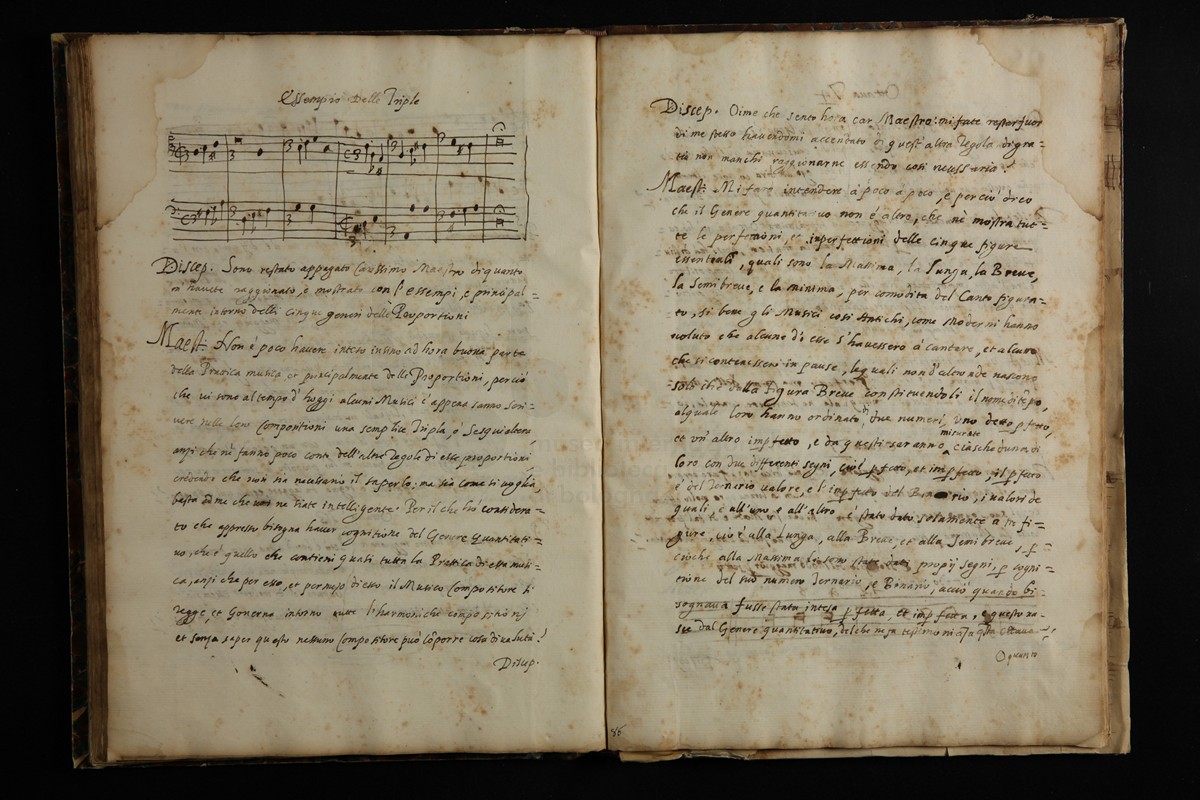 Essempio delle Triple
Discep. Sono restato appagato Carissimo Maestro di quanto
m'havete raggionato, e mostrato con l'essempi, e principal=
mente intorno delli cinque generi delle Proportioni
Maest: Non è poco havere inteso insino ad hora buona parte
della Pratica musica, et principalmente delli Proportioni, perciò
che vi sono al tempo d'hoggi alcuni Musici ch'appena sanno scri=
vere nelle loro Compositioni una semplice Tripla, ò Sesquialtera,
anzi che ne fanno poco conto dell'altre regole di esse proportioni,
credendo che non sia necessario il saperlo; ma sia come si voglia,
basta ad me che voi ne siate intelligente. Per il che hò considera=
to che appresso bisogna haver cognitione del Genere Quantitati=
vo, che è quello che contiene quasi tutta la Prattica di essa musi=
ca, anzi che per esso, et per mezo di esso il Musico Compositore si
regge, et Governa intorno tutte l'harmoniche compositioni
et senza saper questo nessuno compositore può cõporre cosa di valuta.
Discep.
Discep. Oime che sento hora car Maestro: mi fate restar fuor
di me stesso havendomi accendato di quest'altra regola di gra=
tia non manchi raggionarne essendo così necessaria.
Maest: Mi farò intendere à poco à poco, e perciò dico
che il Genere quantitativo non è altro, che ne mostra tut=
te le perfettioni, et imperfettioni delle cinque figure
essentiali, quali sono la Massima, la Lunga, la Breve,
la Semibreve, e la minima, per comodità del Canto figura=
to, si bene gli Musici così Antichi, come Moderni hanno
voluto che alcune di esse s'havessero à cantare, et alcune
che si contenessero in pause, le quali non d'altronde nascono
solo che dalla figura Breve constituendoli il nome di tẽpo,
al quale loro hanno ordinato di due numeri, uno detto pfetto,
et un altro impfetto, e da questi saranno misurate ciascheduna di
loro con due differenti segni, cioè pfetto, et impfetto, il pfetto
è del Ternario valore, e l'impfetto del Binario, i valori de
quali, è all'uno e all'altro è stato dato solamente à tre fi=
gure, cio è alla Lunga, alla Breve, et alla Semibreve, p
cioche alla Massima li sono stati dati proprij segni, p cogni=
tione del suo numero ternario, e Binario, acciò quando bi=
sognava fusse stata intesa pfetta, et impfetta, e questo na=
sce dal Genere quantitativo,
O quanto
86